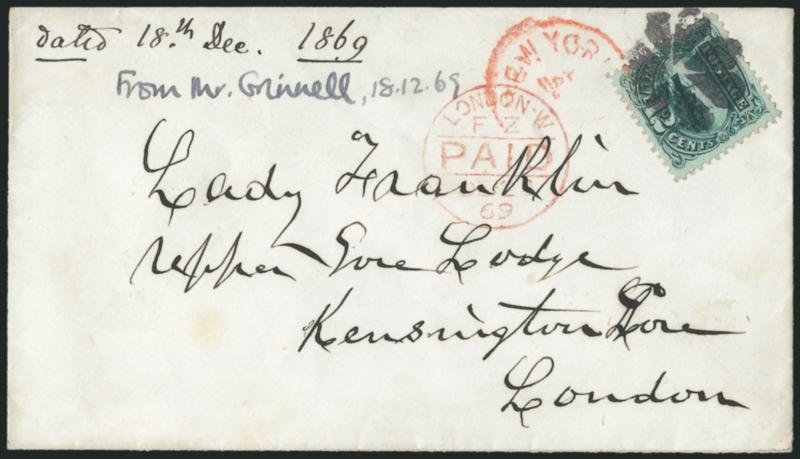 dated 18.th Dec. 1869
From Mr. Grinnell, 18.12.69
NEW YORK
LONDON-W
F Z
PAID
69
POSTAGE
12
CENTS
Lady Franklin
Upper Gore Lodge
Kensington Gore
London